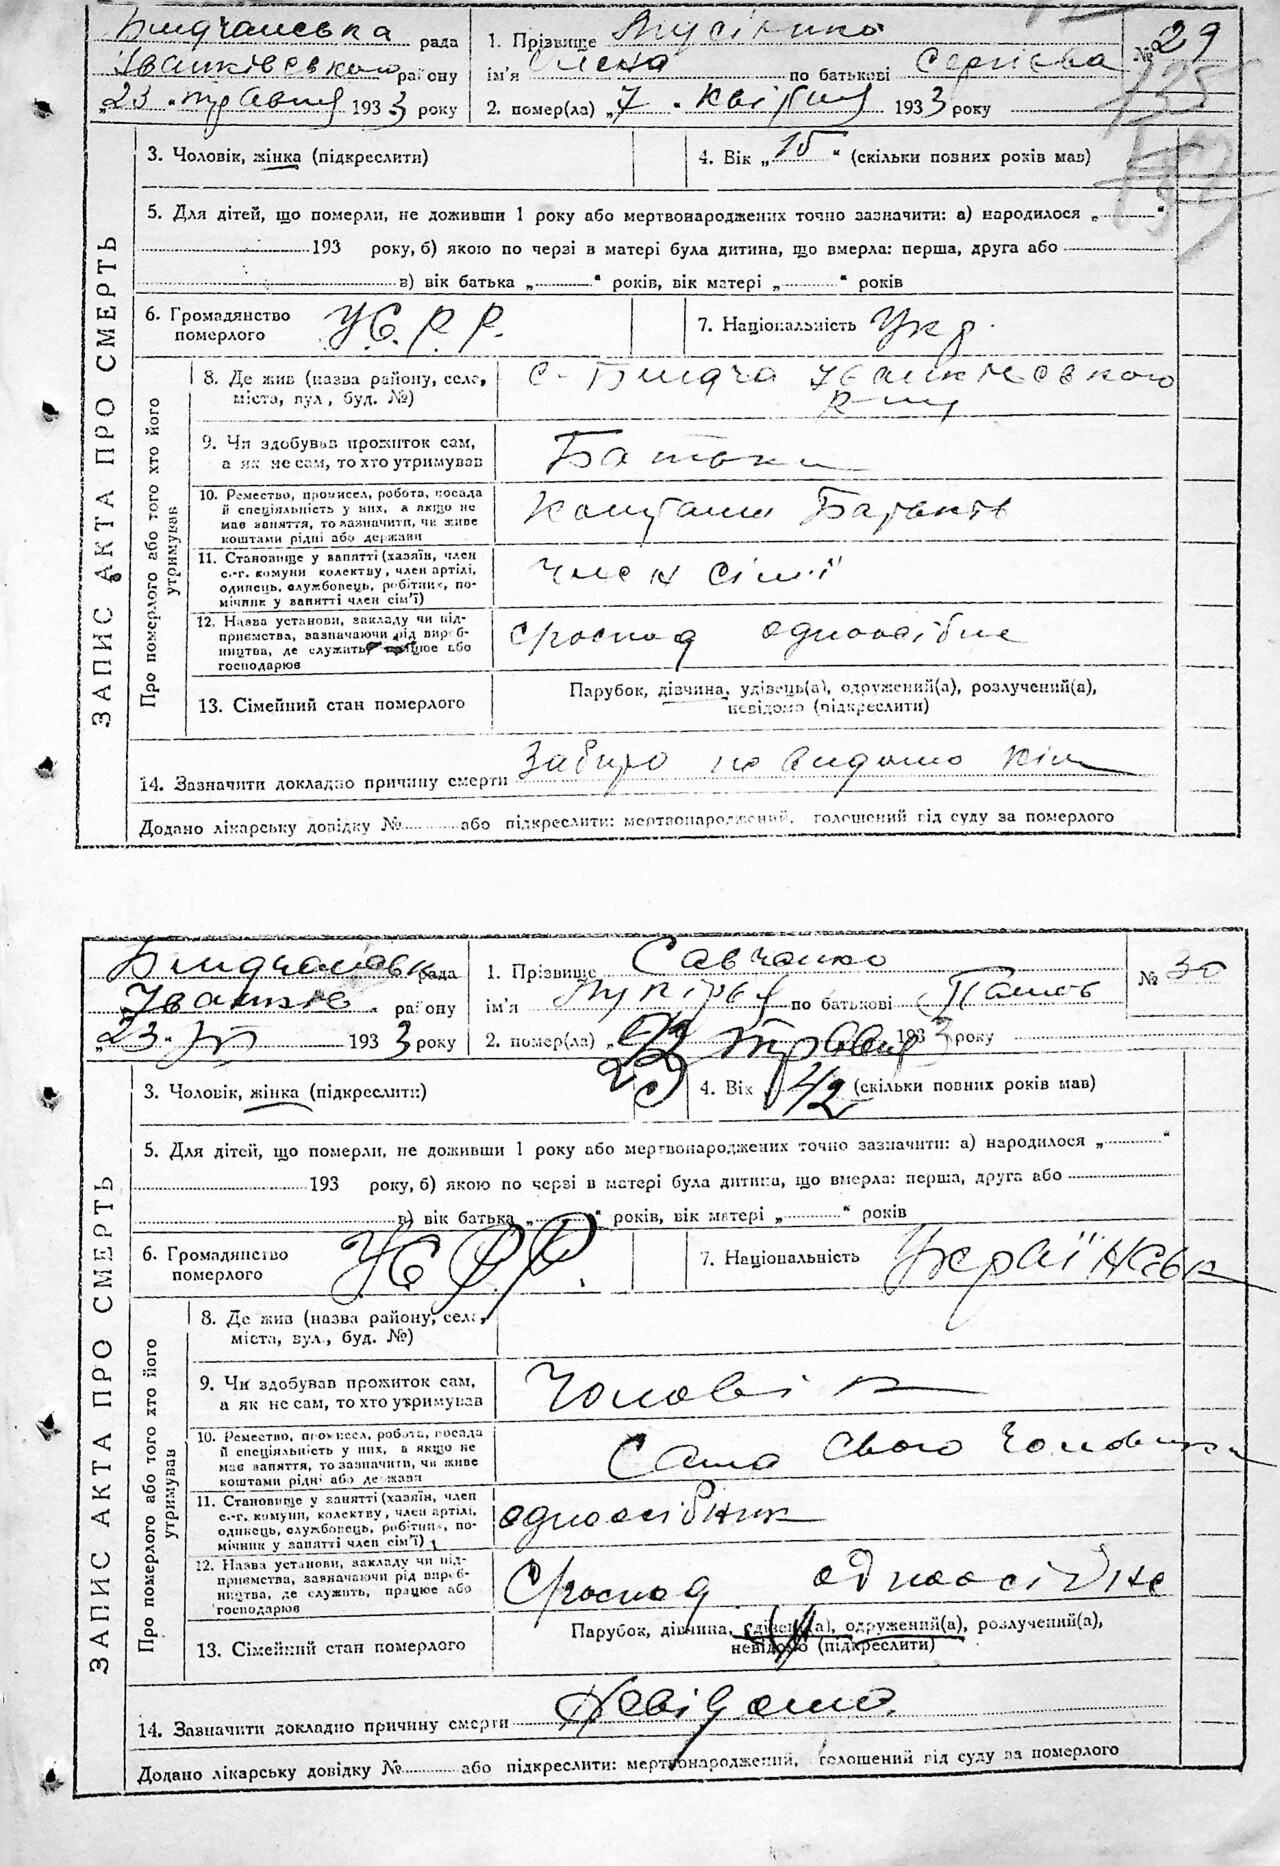 рада
Іванківського району
„23 . травня 1933 року
1. Прізвище
ім'я Олена по батькові Сергієва
2. помер(ла) „7 . квітня 1933 року
№ 29
135
ЗАПИС АКТА ПРО СМЕРТЬ
3. Чоловік, жінка (підкреслити)
4. Вік „ “ (скільки повних років мав)
5. Для дітей, що померли, не доживши 1 року або мертвонароджених точно зазначити: а) народилося „ “
193 року, б) якою по черзі в матері була дитина, що вмерла: перша, друга або
в) вік батька „ “ років, вік матері „ “ років
6. Громадянство померлого
УСРР.
7. Національність Укр.
Про померлого або того хто його утримував
8. Де жив (назва району, села, міста, вул., буд. №)
с. Іванківського
р-ну
9. Чи здобував прожиток сам, а як не сам, то хто утримував
Батьки
10. Ремество, промисел, робота, посада й спеціяльність у них, а якщо не має заняття, то зазначити, чи живе коштами рідні або держави
Коштами Батьків
11. Становище у занятті (хазяїн, член с.-г. комуни колективу, член артілі, одинець, службовець, робітник, помічник у занятті член сім'ї)
член сімї
12. Назва установи, закладу чи підприємства, зазначаючи рід виробництва, де служить, працює або господарює
господ одноосібне
13. Сімейний стан померлого
Парубок, дівчина, удівець(а), одружений(а), розлучений(а),
невідомо (підкреслити)
14. Зазначити докладно причину смерти
Додано лікарську довідку № або підкреслити: мертвонароджений, оголошений від суду за померлого
рада
Іванків. району
„23. 1933 року
1. Прізвище Савченко
ім'я по батькові Павлов
2. помер(ла) „23 травня 1933 року
23
№ 30
ЗАПИС АКТА ПРО СМЕРТЬ
3. Чоловік, жінка (підкреслити)
4. Вік 42 (скільки повних років мав)
5. Для дітей, що померли, не доживши 1 року або мертвонароджених точно зазначити: а) народилося „ “
193 року, б) якою по черзі в матері була дитина, що вмерла: перша, друга або
в) вік батька „ “ років, вік матері „ “ років
6. Громадянство померлого
УСРР.
7. Національність Українськ
Про померлого або того хто його утримував
8. Де жив (назва району, села, міста, вул., буд. №)
9. Чи здобував прожиток сам, а як не сам, то хто утримував
Чоловік
10. Ремество, промисел, робота, посада й спеціяльність у них, а якщо не має заняття, то зазначити, чи живе коштами рідні або держави
свого Чоловіка
11. Становище у занятті (хазяїн, член с.-г. комуни, колективу, член артілі, одинець, службовець, робітник, помічник у занятті член сім'ї)
одноосібник
12. Назва установи, закладу чи підприємства, зазначаючи рід виробництва, де служить, працює або господарює
господ. одноосібне
13. Сімейний стан померлого
Парубок, дівчина, удівець(а), одружений(а), розлучений(а),
невідомо (підкреслити)
14. Зазначити докладно причину смерти Невідомо.
Додано лікарську довідку № або підкреслити: мертвонароджений, оголошений від суду за померлого